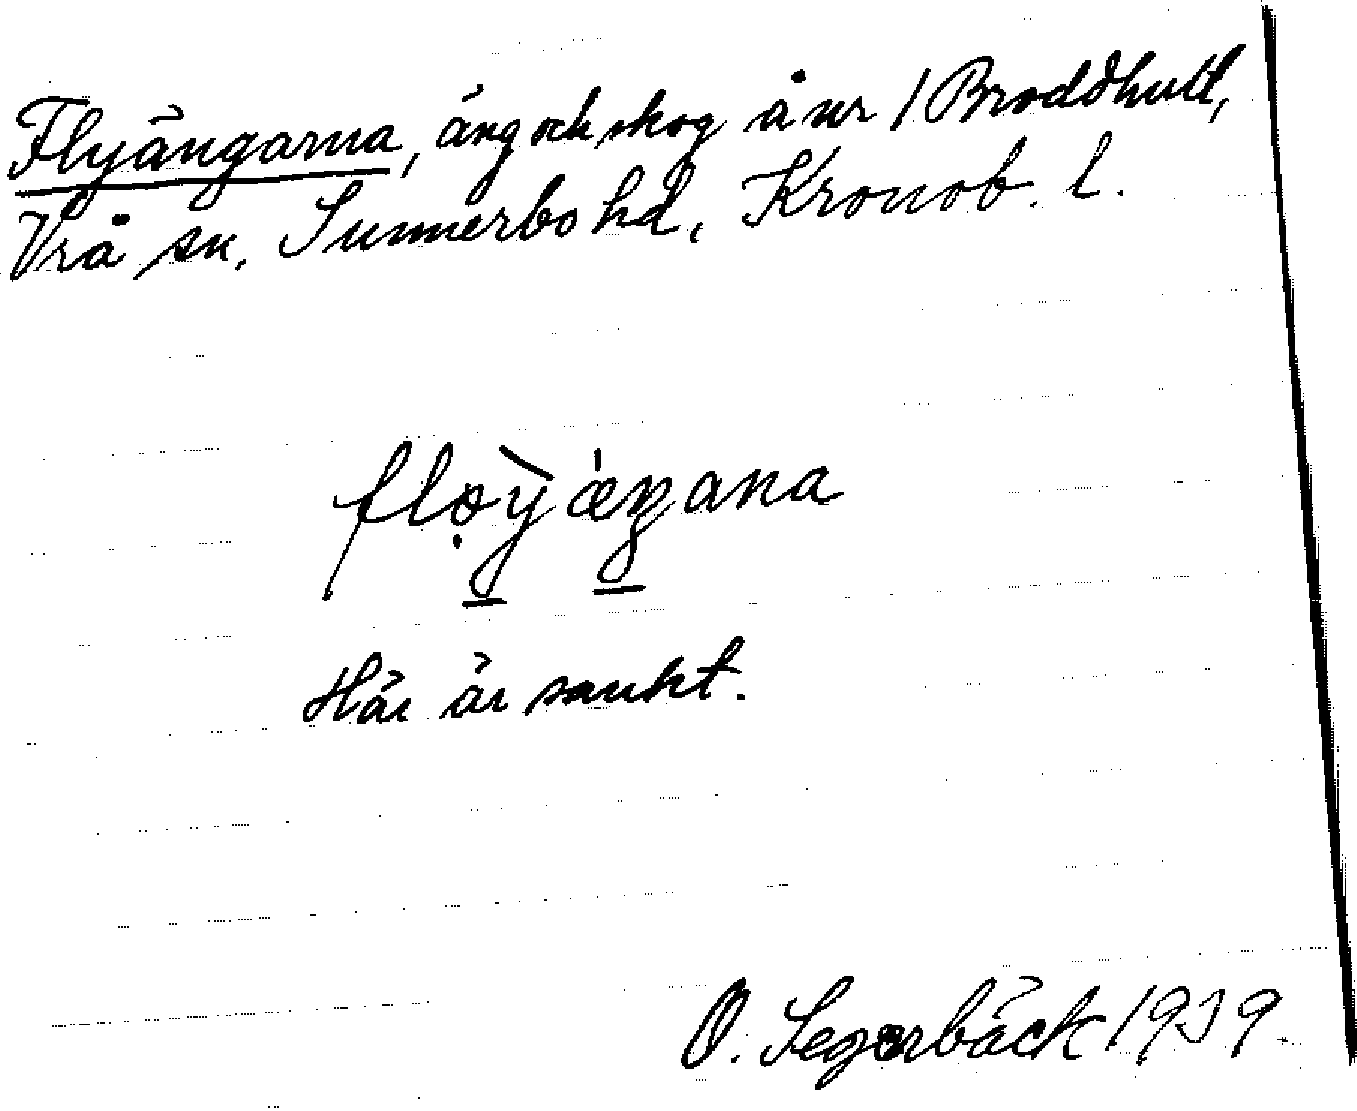 Flyängarna, äng och skog å nr 1 Broddhult,
Vrå sn, Sunnerbo hd, Kronob. l.
fløỳæŋana
Här är sankt.
O. Segerbäck 1939.